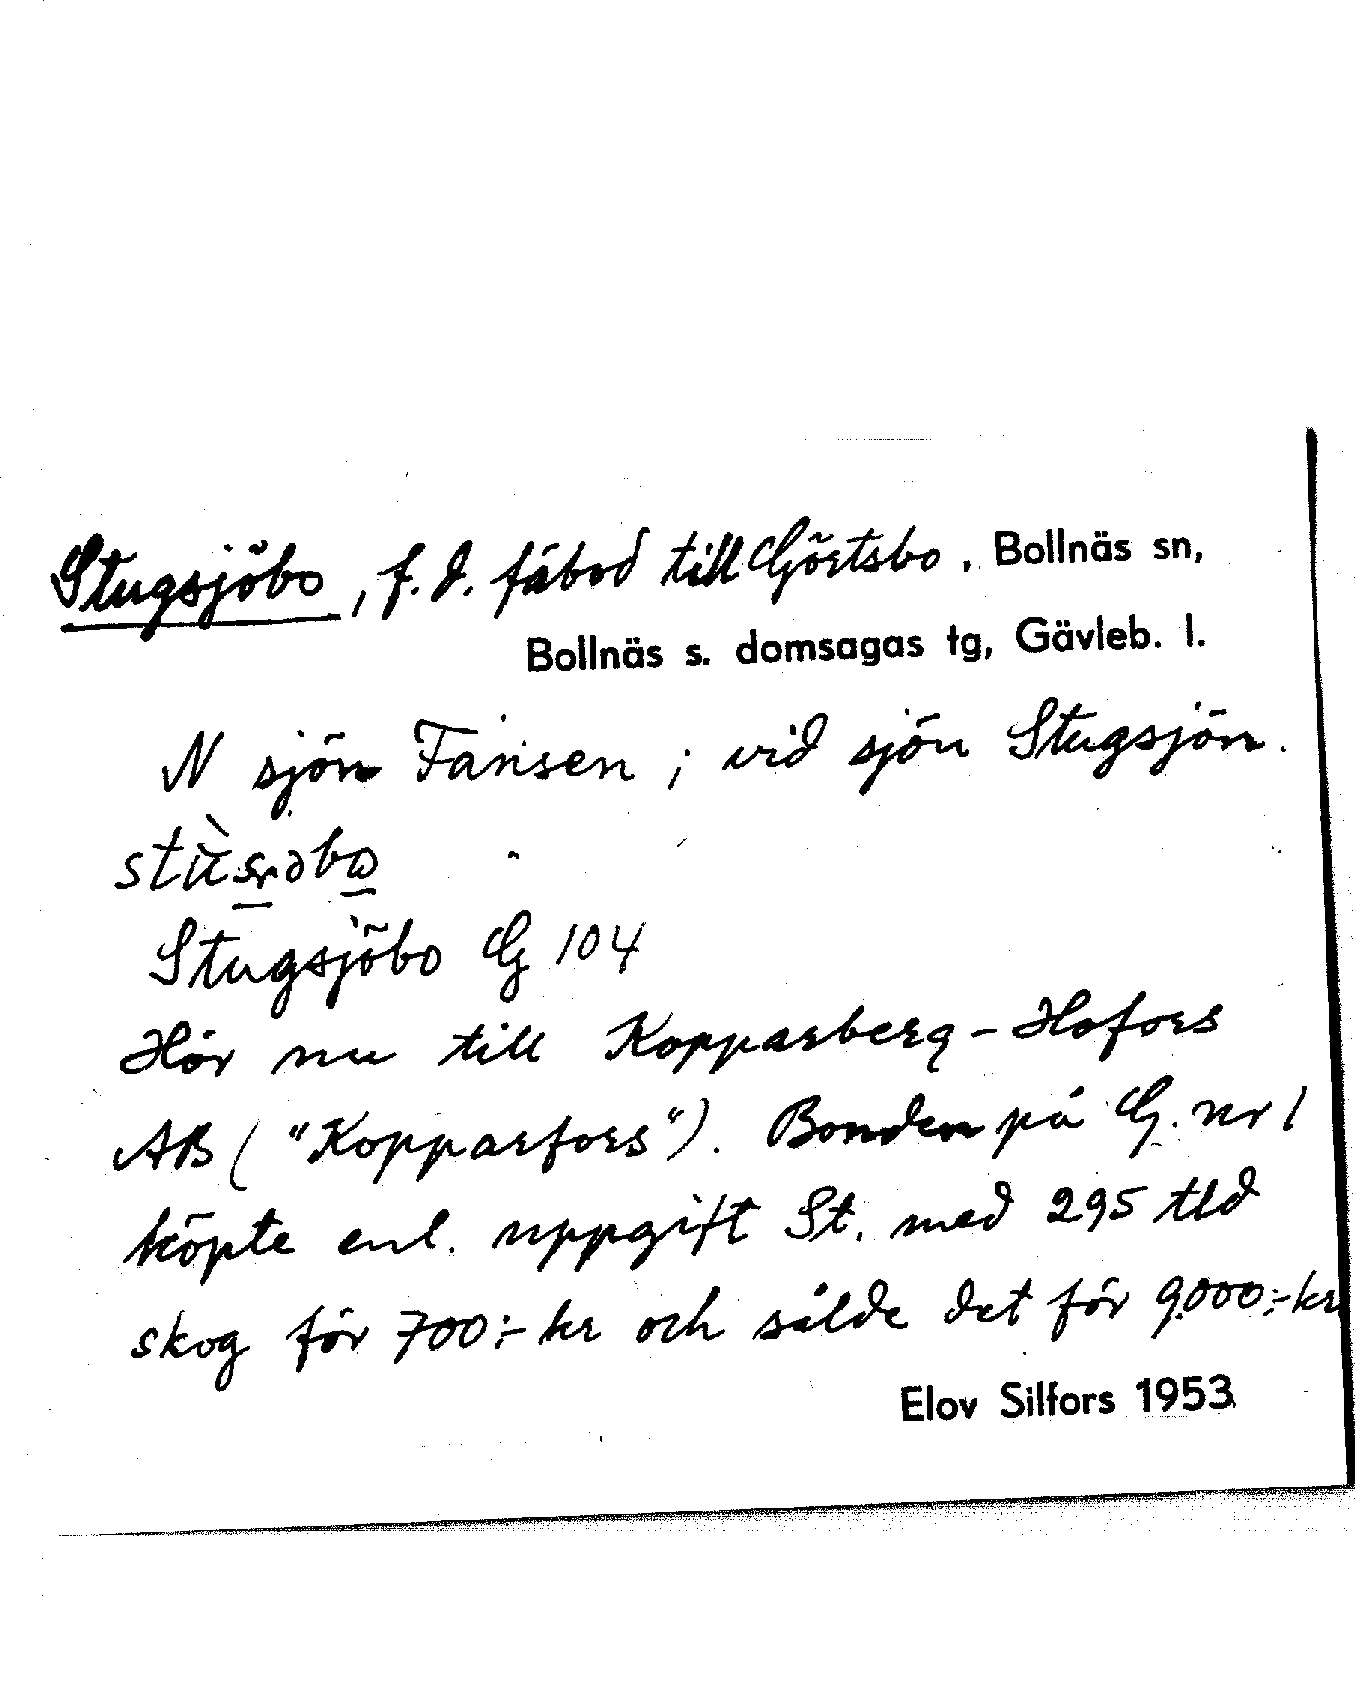 Stugsjöbo, f.d. fäbod till Görtsbo, Bollnäs sn,
Bollnäs s. domsagas tg, Gävleb. l.
N sjön Fänsen; vid sjön Stugsjön.
Stugsjöbo G 104
Hör nu till Kopparberg-Hofors
AB ("Kopparfors"). Bonden på G. nr 1
köpte enl. uppgift St. med 295 tld
skog för 700:- kr och sålde det för 9.000:- kr
Elov Silfors 1953